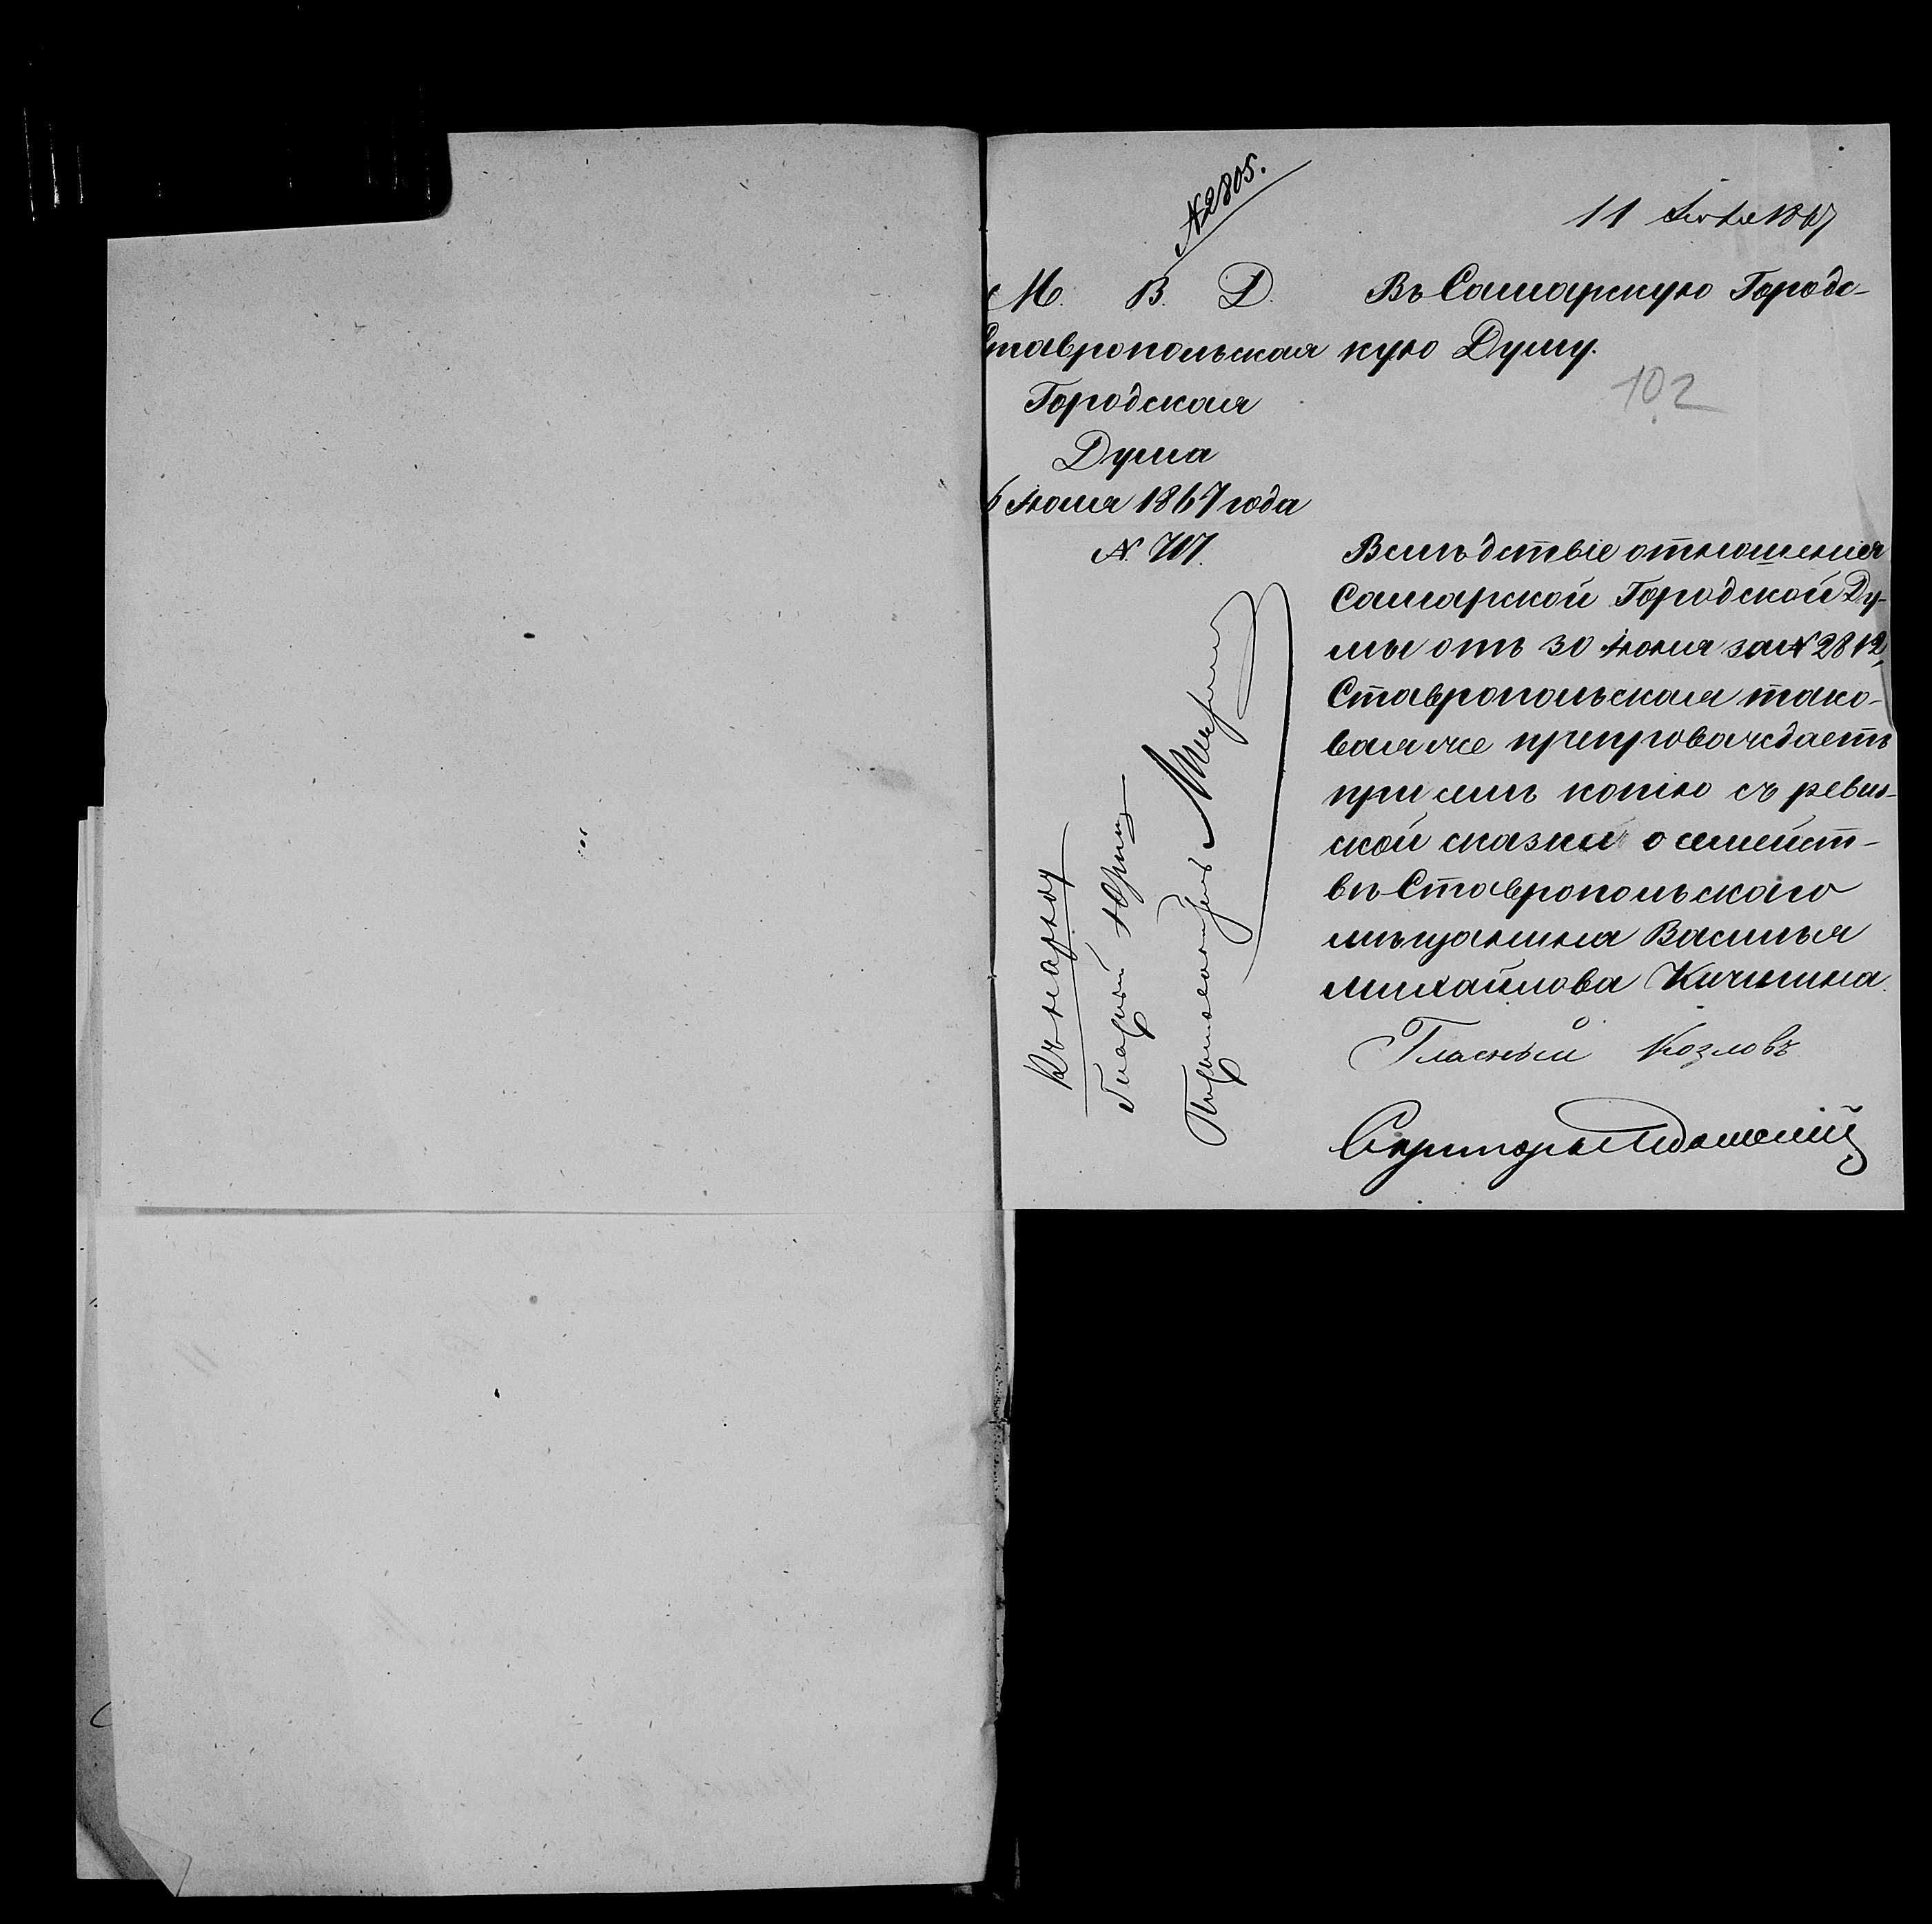 № 2805.
11 Іюля 1867
М. В. Д.
Ставропольская
Городская
Дума
6 Іюля 1867 года
№ 717.
Въ Самарскую Городс-
кую Думу.
102
Вслѣдствіе отношенія
Самарской Городской Ду-
мы отъ 30 Іюня за № 2812,
Ставропольская тако-
вая же препровождаетъ
при семъ копію съ ревиз-
ской сказки о семейст-
вѣ Ставропольскаго
мѣщанина Василья
Михайлова Кичинина.
Гласный Козловъ
Секретарь
Къ наряду
Гласный Юринъ